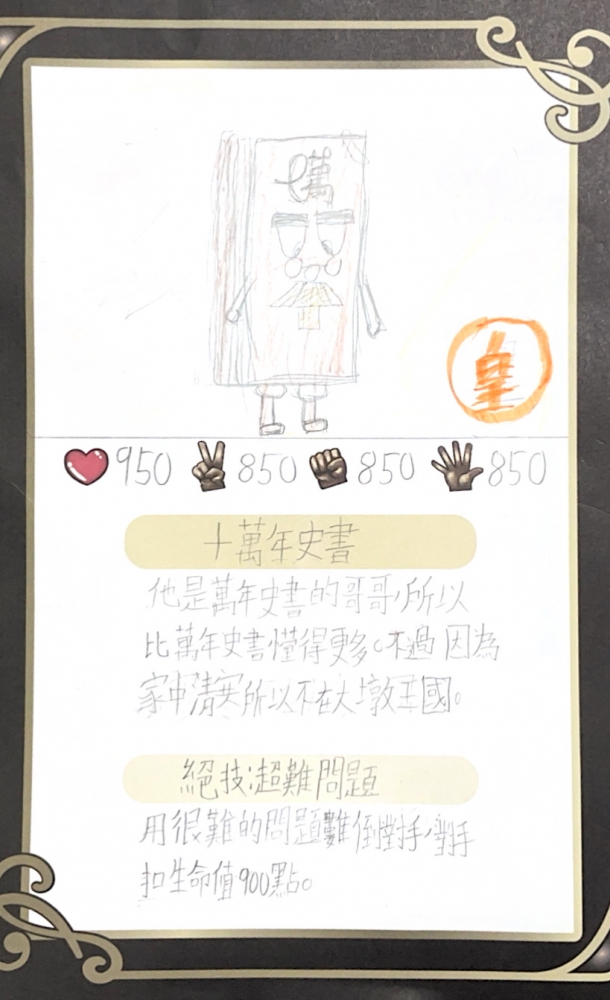 萬
皇
950 850 850 850
十萬年史書
他是萬年史書的哥哥,所以
比萬年史書懂得更多。不過因為
家中清安所以不在大墩王國。
絕技:超難問題
用很難的問題難倒對手,對手
扣生命值900點。